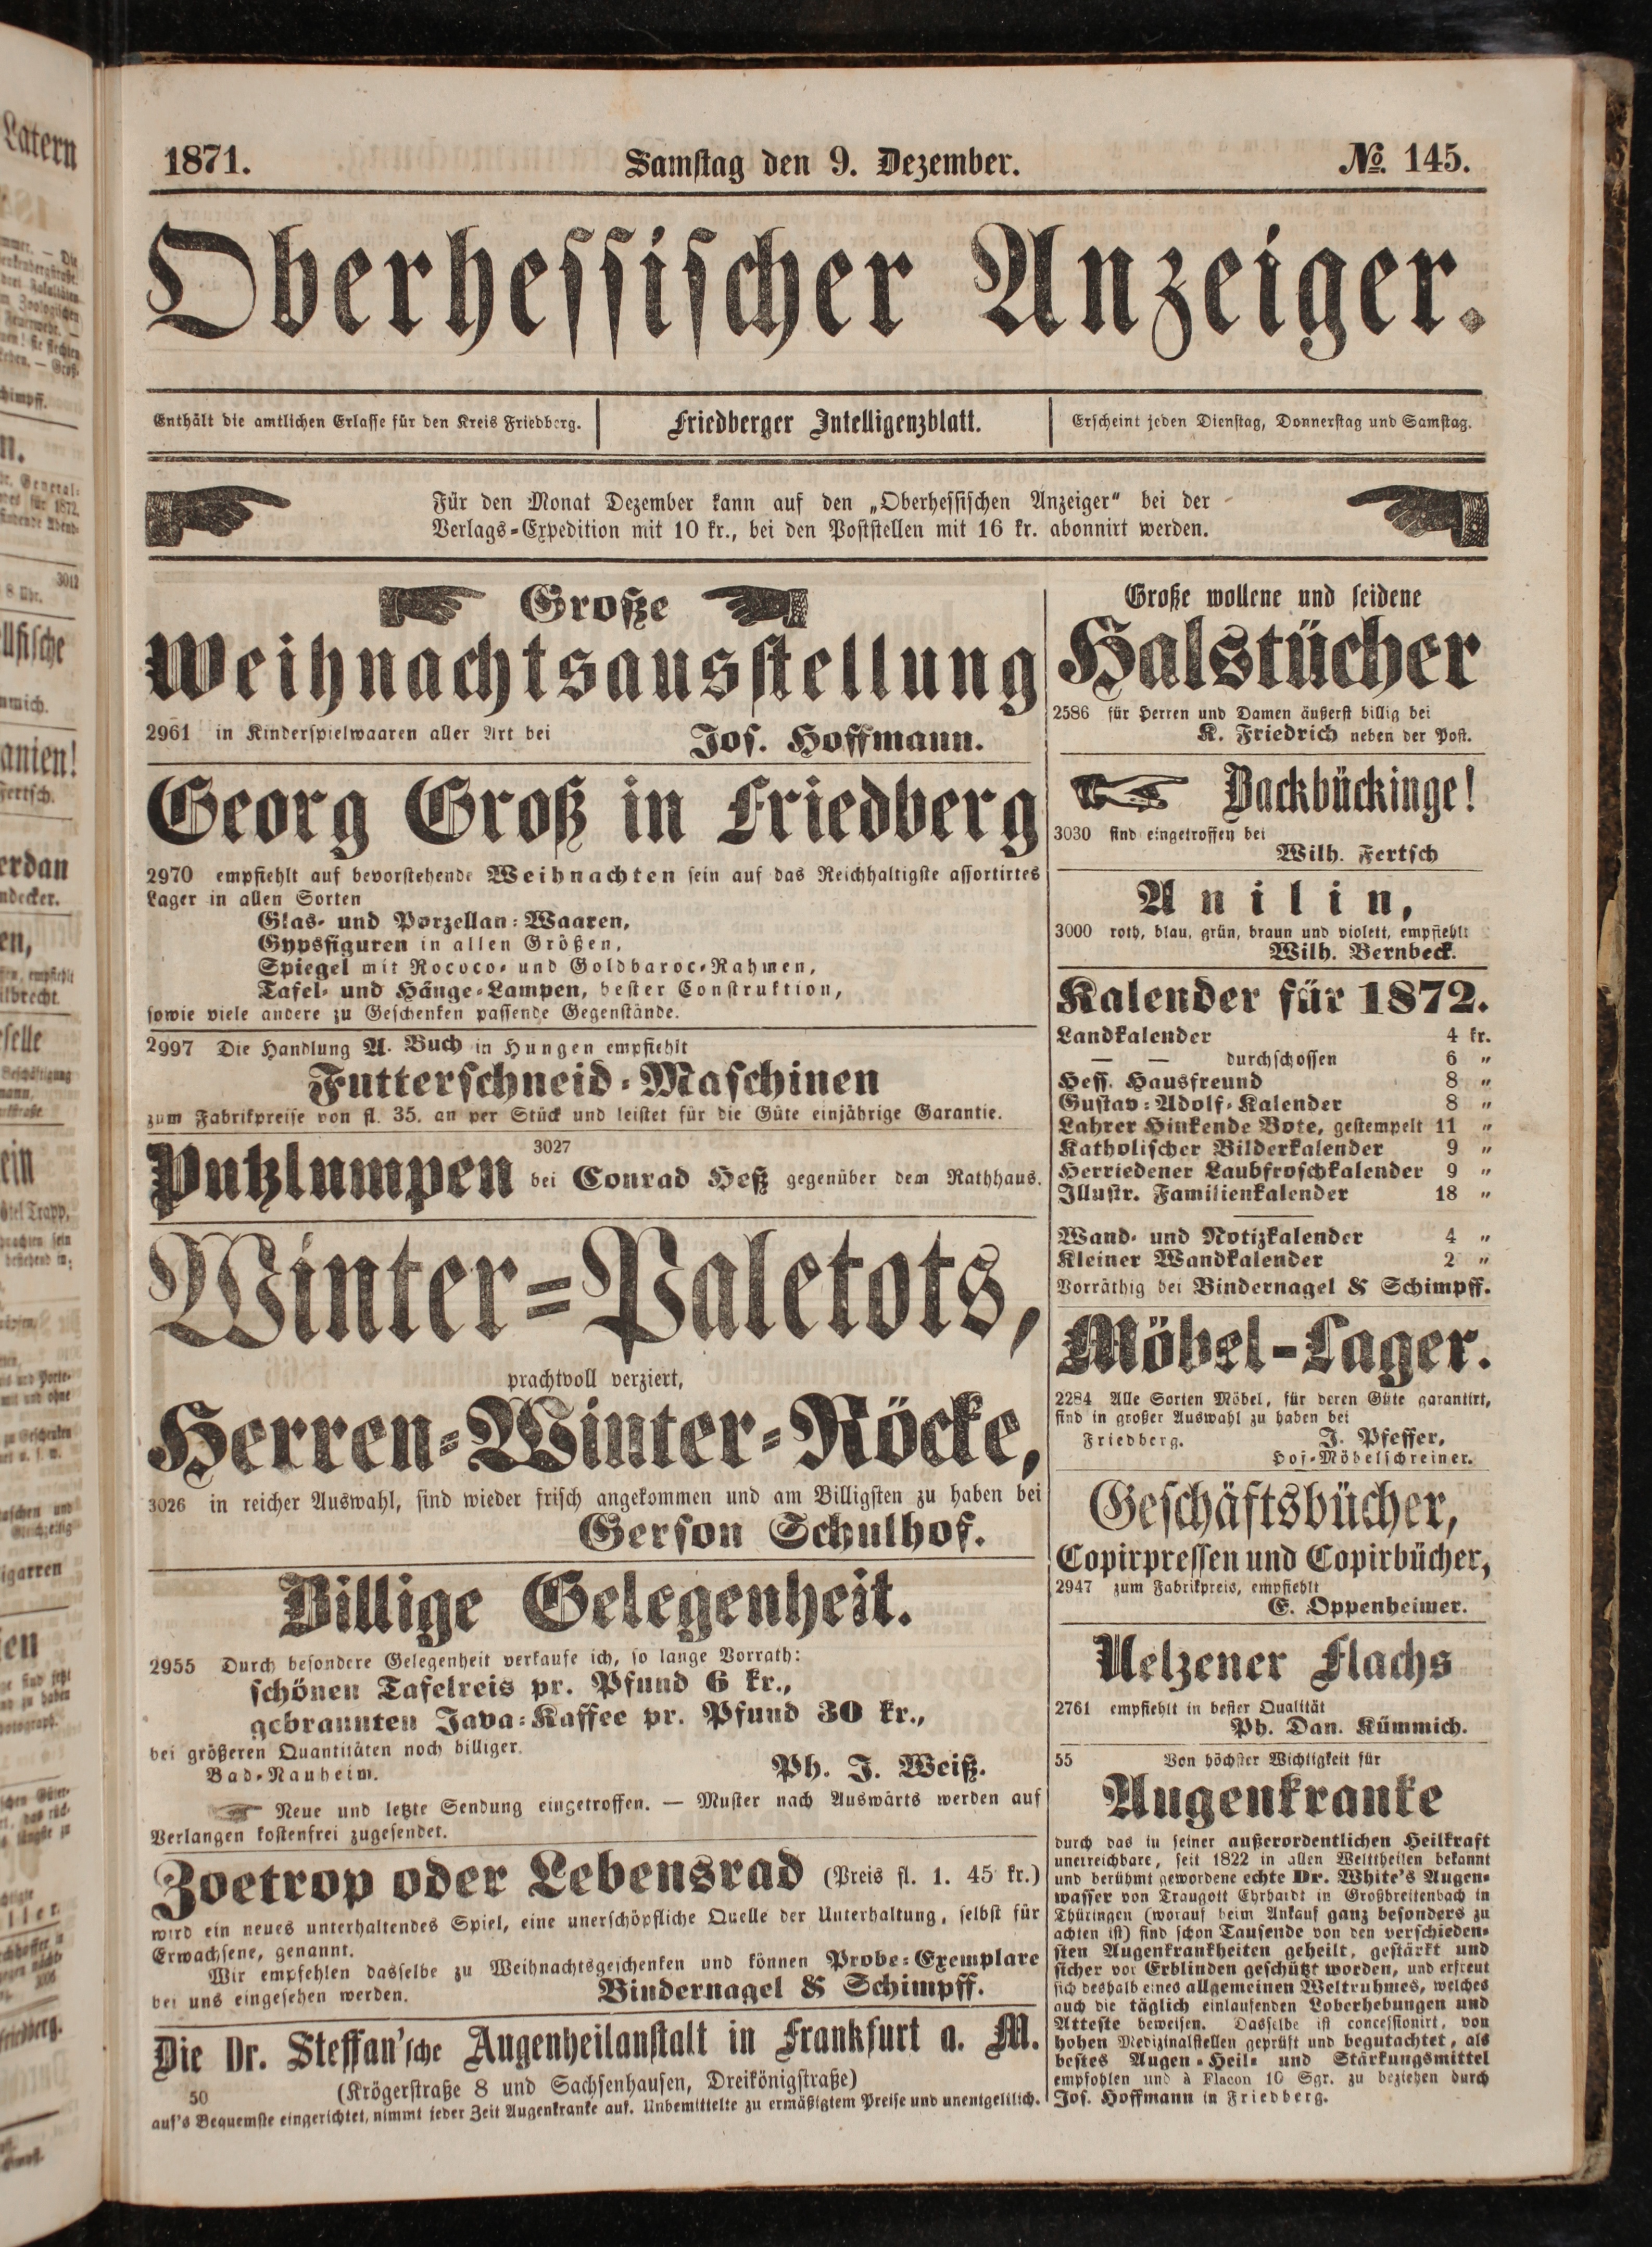 1871.
Samstag den 9. Dezember.
No. 145.
Oberhessischer Anzeiger.
Enthält die amtlichen Erlasse für den Kreis Friedberg.
Friedberger Intelligenzblatt.
Erscheint jeden Dienstag, Donnerstag und Samstag.
Für den Monat Dezember kann auf den „Oberhessischen Anzeiger“ bei der
Verlags-Expedition mit 10 kr., bei den Poststellen mit 16 kr. abonnirt werden.
Große
Weihnachtsausstellung
2961 in Kinderspielwaaren aller Art bei
Jos. Hoffmann.
Georg Groß in Friedberg
2970 empfiehlt auf bevorstehende Weihnachten sein auf das Reichhaltigste assortirtes
Lager in allen Sorten
Glas- und Porzellan-Waaren,
Gypsfiguren in allen Größen,
Spiegel mit Rococo- und Goldbaroc-Rahmen,
Tafel- und Hänge-Lampen, bester Construktion,
sowie viele andere zu Geschenken passende Gegenstände.
2997 Die Handlung A. Buch in Hungen empfiehlt
Futterschneid-Maschinen
zum Fabrikpreise von fl. 35. an per Stück und leistet für die Güte einjährige Garantie.
3027
Putzlumpen bei Conrad Heß gegenüber dem Rathhaus.
Winter-Paletots,
prachtvoll verziert,
Herren-Winter-Röcke,
3026 in reicher Auswahl, sind wieder frisch angekommen und am Billigsten zu haben bei
Gerson Schulhof.
Billige Gelegenheit.
2955 Durch besondere Gelegenheit verkaufe ich, so lange Vorrath:
schönen Tafelreis pr. Pfund 6 kr.,
gebrannten Java-Kaffee pr. Pfund 30 kr.,
bei größeren Quantitäten noch billiger.
Bad-Nauheim.
Ph. J. Weiß.
Neue und letzte Sendung eingetroffen. — Muster nach Auswärts werden auf
Verlangen kostenfrei zugesendet.
Zoetrop oder Lebensrad (Preis fl. 1. 45 kr.)
wird ein neues unterhaltendes Spiel, eine unerschöpfliche Quelle der Unterhaltung, selbst für
Erwachsene, genannt.
Wir empfehlen dasselbe zu Weihnachtsgeschenken und können Probe-Exemplare
bei uns eingesehen werden.
Bindernagel & Schimpff.
Die Dr. Steffan'sche Augenheilanstalt in Frankfurt a. M.
50 (Krögerstraße 8 und Sachsenhausen, Dreikönigstraße)
auf's Bequemste eingerichtet, nimmt jeder Zeit Augenkranke auf. Unbemittelte zu ermäßigtem Preise und unentgeltlich.
Große wollene und seidene
Halstücher
2586 für Herren und Damen äußerst billig bei
K. Friedrich neben der Post.
Backbückinge!
3030 sind eingetroffen bei
Wilh. Fertsch
Anilin,
3000 roth, blau, grün, braun und violett, empfiehlt
Wilh. Bernbeck.
Kalender für 1872.
Landkalender 4 kr.
— — durchschossen 6 „
Hess. Hausfreund 8 „
Gustav-Adolf-Kalender 8 „
Lahrer Hinkende Bote, gestempelt 11 „
Katholischer Bilderkalender 9 „
Herriedener Laubfroschkalender 9 „
Illustr. Familienkalender 18 „
Wand- und Notizkalender 4 „
Kleiner Wandkalender 2 „
Vorräthig bei Bindernagel & Schimpff.
Möbel-Lager.
2284 Alle Sorten Möbel, für deren Güte garantirt,
sind in großer Auswahl zu haben bei
Friedberg. J. Pfeffer,
Hof-Möbelschreiner.
Geschäftsbücher,
Copirpressen und Copirbücher,
2947 zum Fabrikpreis, empfiehlt
E. Oppenheimer.
Uelzener Flachs
2761 empfiehlt in bester Qualität
Ph. Dan. Kümmich.
55 Von höchster Wichtigkeit für
Augenkranke
durch das in seiner außerordentlichen Heilkraft
unerreichbare, seit 1822 in allen Welttheilen bekannt
und berühmt gewordene echte Dr. White's Augen-
wasser von Traugott Ehrhardt in Großbreitenbach in
Thüringen (worauf beim Ankauf ganz besonders zu
achten ist) sind schon Tausende von den verschieden-
sten Augenkrankheiten geheilt, gestärkt und
sicher vor Erblinden geschützt worden, und erfreut
sich deshalb eines allgemeinen Weltruhmes, welches
auch die täglich einlaufenden Loberhebungen und
Atteste beweisen. Dasselbe ist concessionirt, von
hohen Medizinalstellen geprüft und begutachtet, als
bestes Augen-Heil- und Stärkungsmittel
empfohlen und à Flacon 10 Sgr. zu beziehen durch
Jos. Hoffmann in Friedberg.